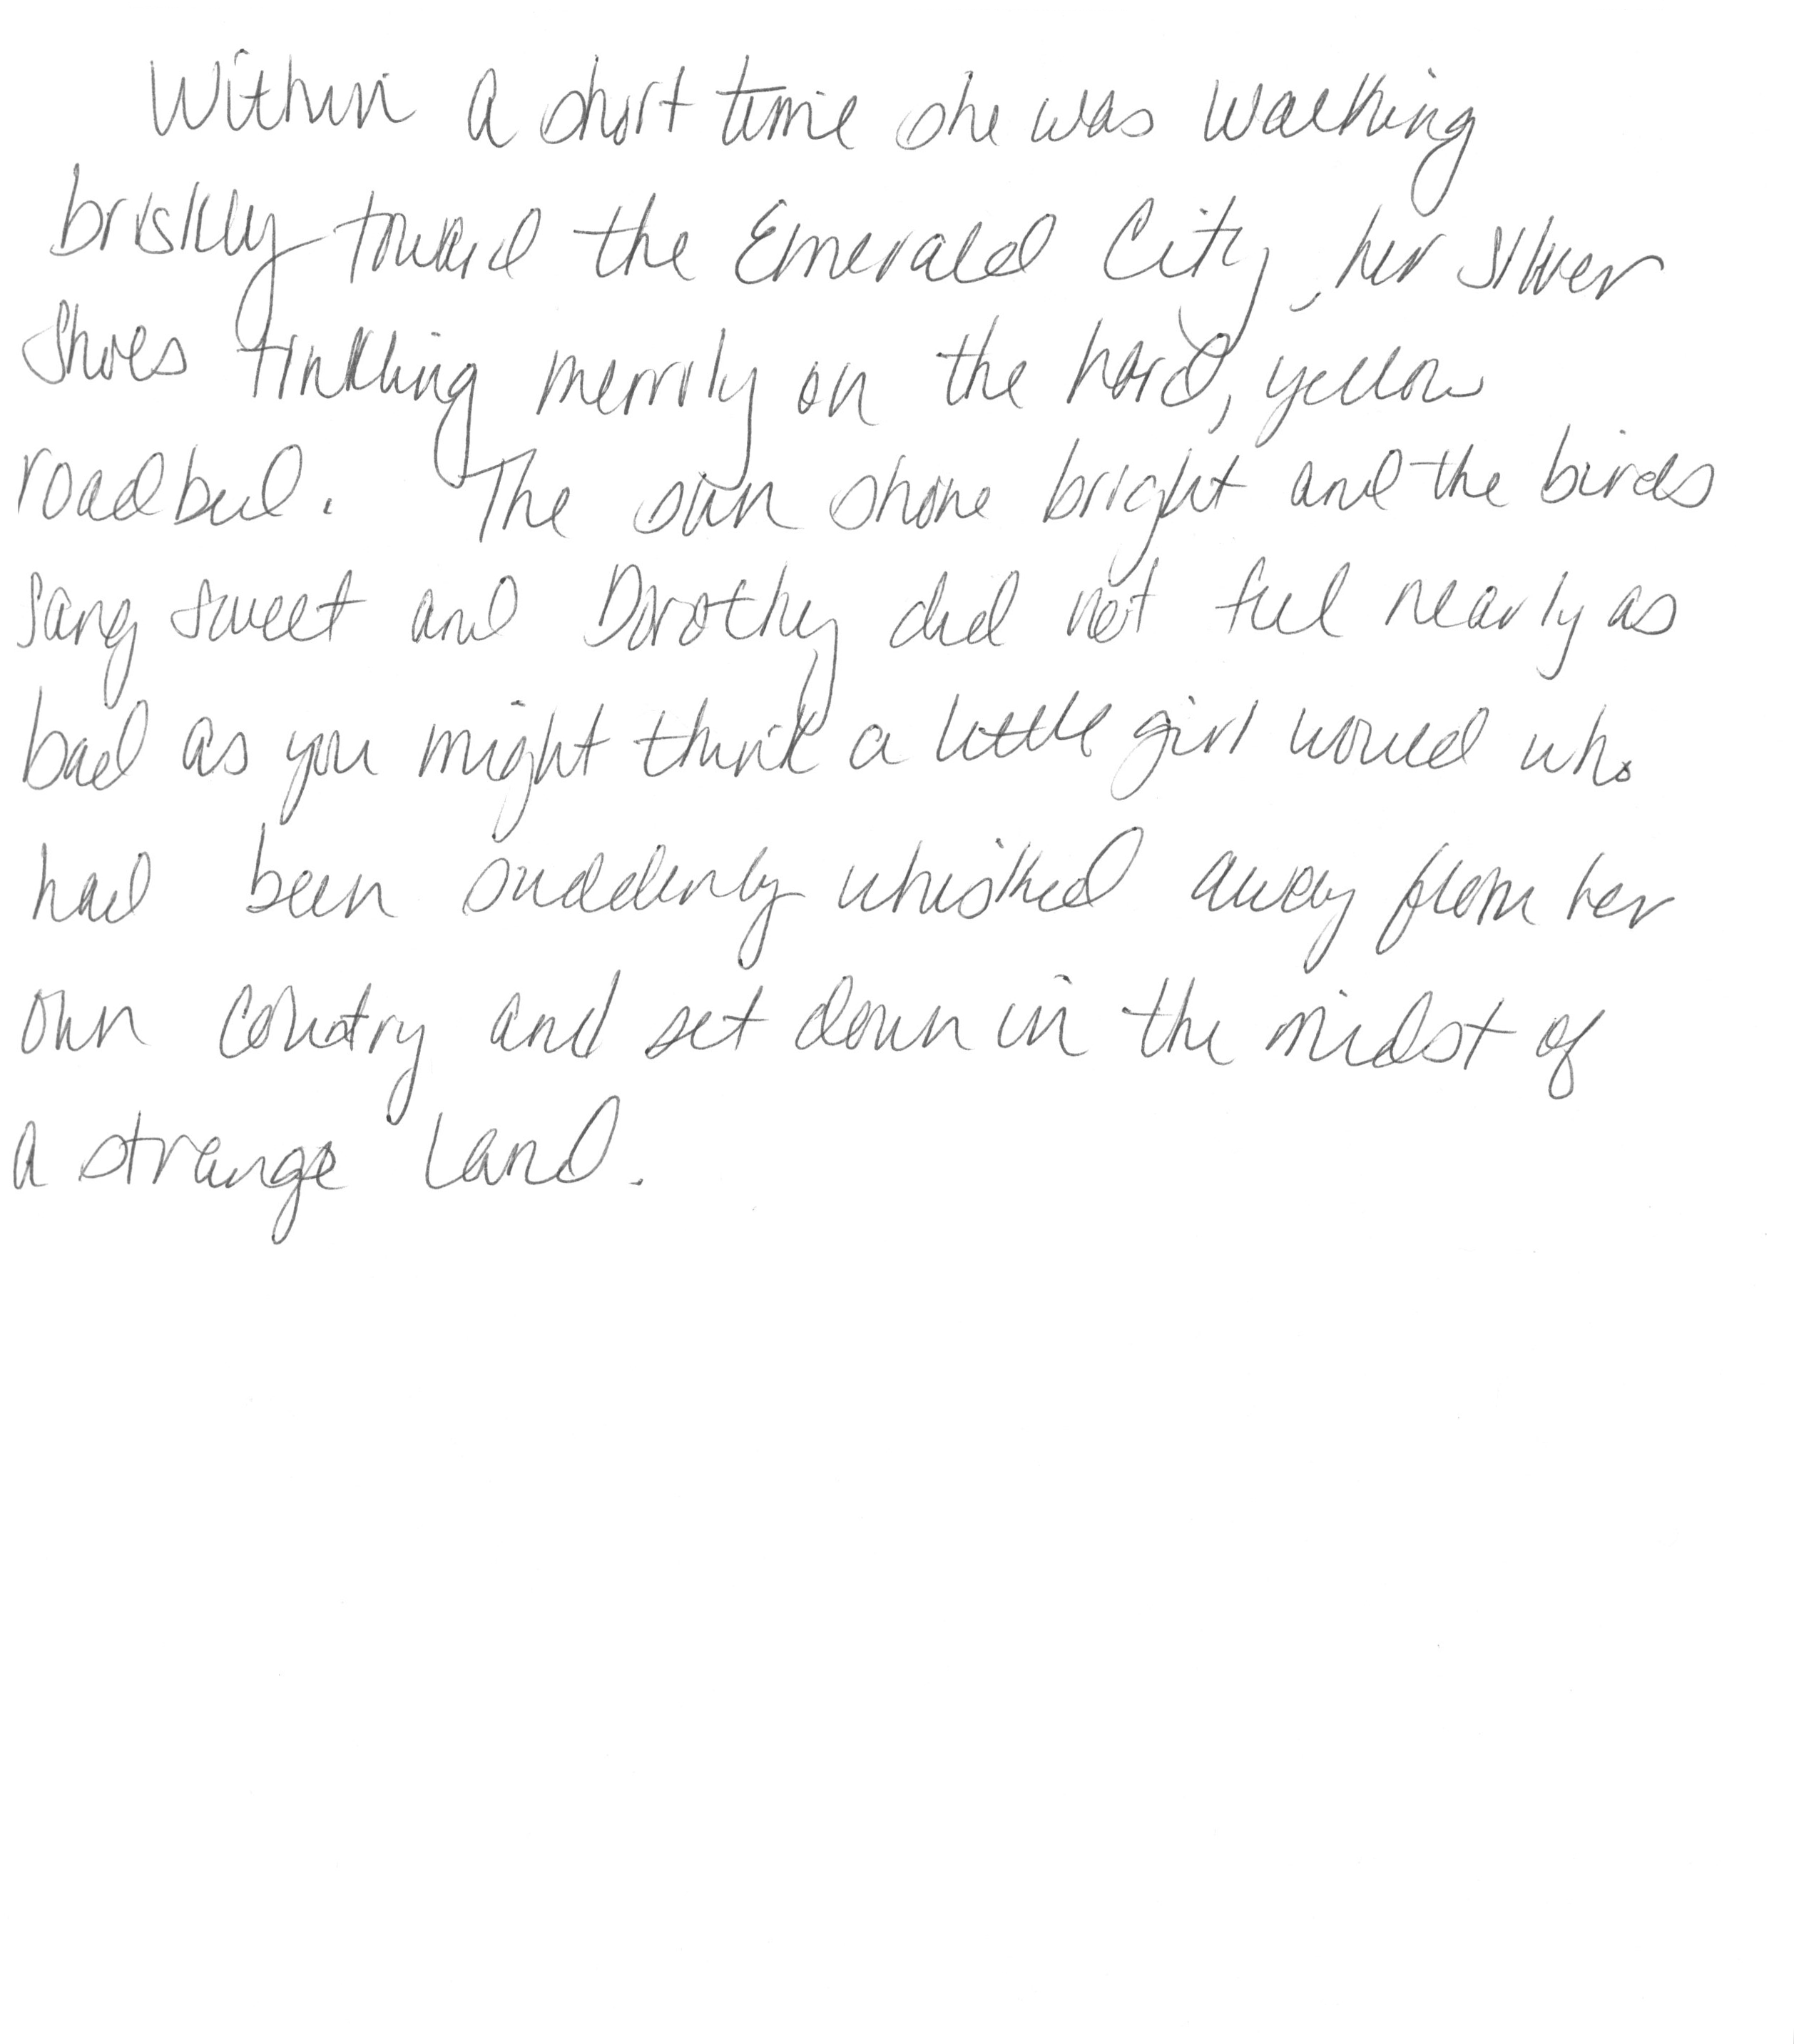 Within a short time she was walking
briskly toward the Emerald City, her silver
shoes tinkling merrily on the hard, yellow
roadbed. The sun shone bright and the birds
sang sweet and Dorothy did not feel nearly as
bad as you might think a little girl would who
had been suddenly whisked away from her
own country and set down in the midst of
a strange land.